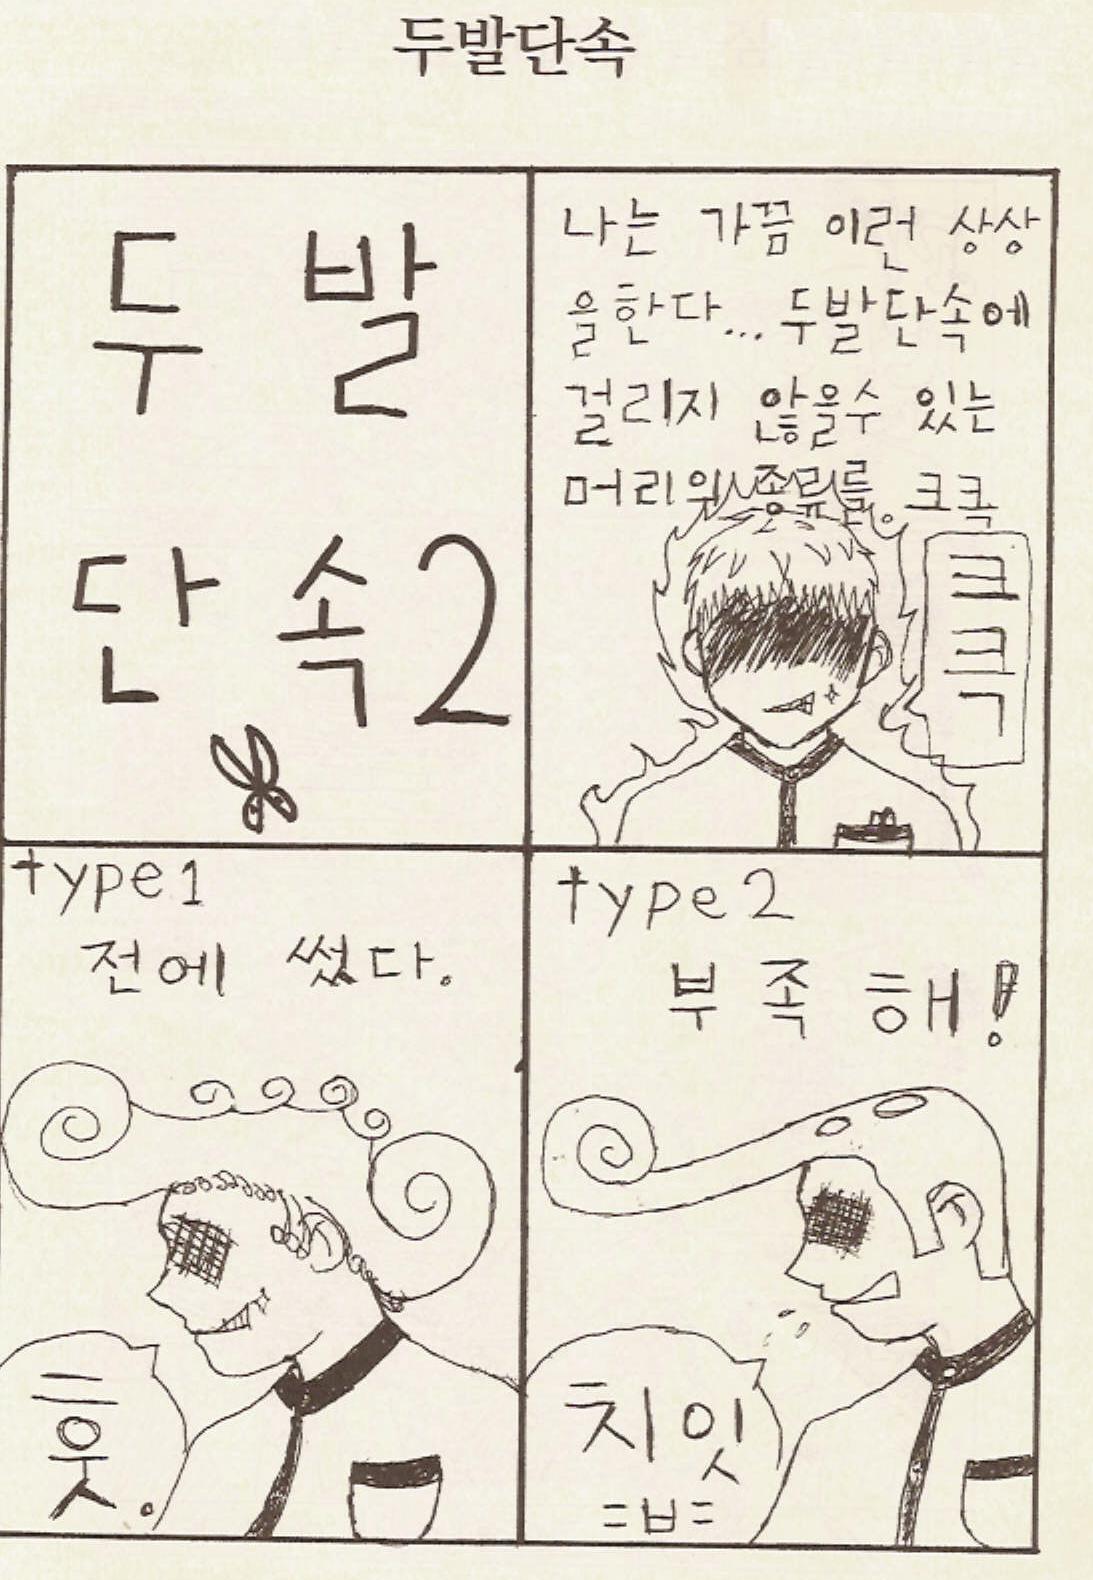 두발단속
두 발
단 속2
나는 가끔 이런 상상
을한다...두발단속에
걸리지 않을수 있는
머리의 종류를. 크큭
크
큭
type1
전에 썼다.
흣.
type2
부족해!
치잇